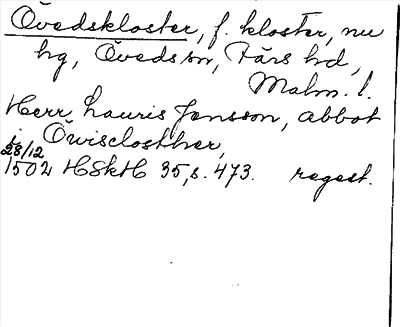 Övedskloster, f. kloster, nu
hg, Öveds sn, Färs hd,
Malm. l.
Herr Lauris Jensson, abbot
i Öwisclosther,
28/12
1502 HSkH 35, s. 473. regest.